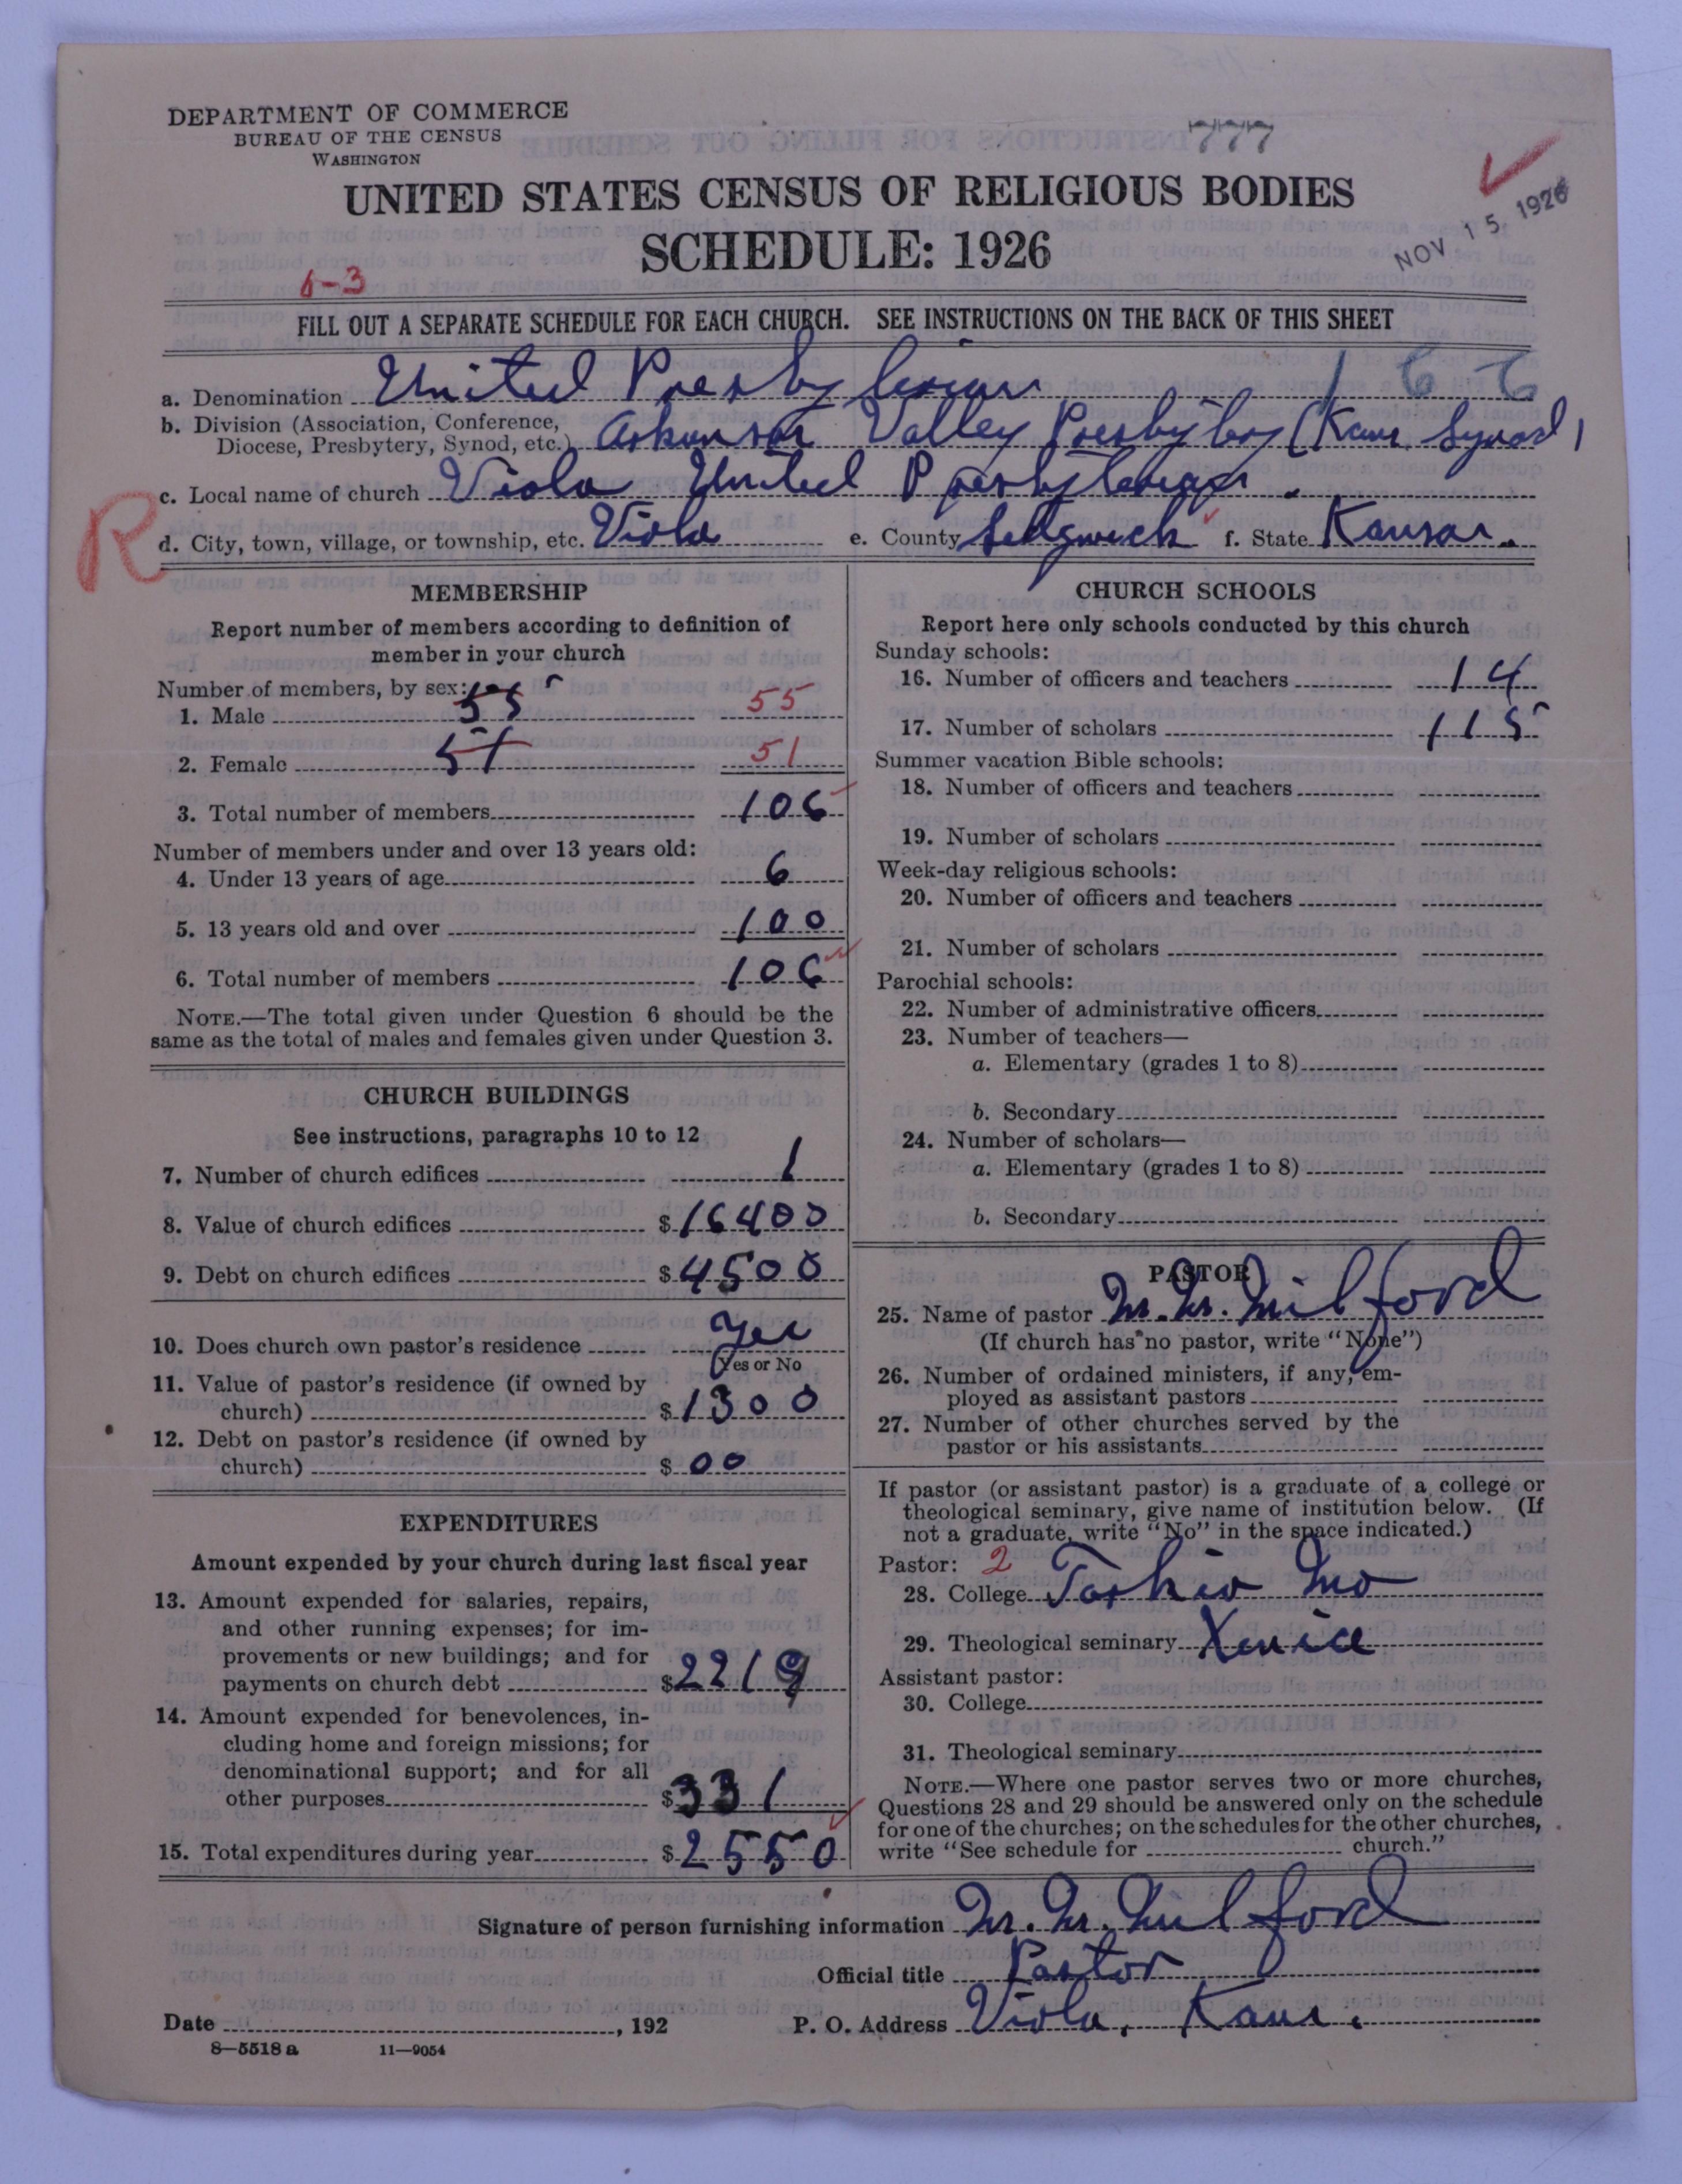 DEPARTMENT OF COMMERCE
BUREAU OF THE CENSUS
WASHINGTON
777
UNITED STATES CENSUS OF RELIGIOUS BODIES
SCHEDULE: 1926
NOV 15 1926
6-3
FILL OUT A SEPARATE SCHEDULE FOR EACH CHURCH. SEE INSTRUCTIONS ON THE BACK OF THIS SHEET
a. Denomination United Presbyterian 166
b. Division (Association, Conference,
Diocese, Presbytery, Synod, etc.) Arkansas Valley Presbytery (Kans Synod)
c. Local name of church Viola United Presbyterian.
R
d. City, town, village, or township, etc. Viola e. County Sedgwick f. State Kansas.
MEMBERSHIP
Report number of members according to definition of
member in your church
Number of members, by sex:
1. Male 55 55
2. Female 51 51
3. Total number of members 106
Number of members under and over 13 years old:
4. Under 13 years of age 6
5. 13 years old and over 100
6. Total number of members 106
NOTE.—The total given under Question 6 should be the
same as the total of males and females given under Question 3.
CHURCH BUILDINGS
See instructions, paragraphs 10 to 12
7. Number of church edifices 1
8. Value of church edifices $16400
9. Debt on church edifices $4500
10. Does church own pastor's residence Yes
(Yes or No
11. Value of pastor's residence (if owned by
church) $1300
12. Debt on pastor's residence (if owned by
church) $00
EXPENDITURES
Amount expended by your church during last fiscal year
13. Amount expended for salaries, repairs,
and other running expenses; for im-
provements or new buildings; and for
payments on church debt $2219
14. Amount expended for benevolences, in-
cluding home and foreign missions; for
denominational support; and for all
other purposes $331
15. Total expenditures during year $2550
CHURCH SCHOOLS
Report here only schools conducted by this church
Sunday schools:
16. Number of officers and teachers 14
17. Number of scholars 115
Summer vacation Bible schools:
18. Number of officers and teachers
19. Number of scholars
Week-day religious schools:
20. Number of officers and teachers
21. Number of scholars
Parochial schools:
22. Number of administrative officers
23. Number of teachers—
a. Elementary (grades 1 to 8)
b. Secondary
24. Number of scholars—
a. Elementary (grades 1 to 8)
b. Secondary
PASTOR
25. Name of pastor M. M. Milford
(If church has no pastor, write "None")
26. Number of ordained ministers, if any, em-
ployed as assistant pastors
27. Number of other churches served by the
pastor or his assistants
If pastor (or assistant pastor) is a graduate of a college or
theological seminary, give name of institution below. (If
not a graduate, write "No" in the space indicated.)
Pastor: 2
28. College Tarkio Mo
29. Theological seminary Xenia
Assistant pastor:
30. College
31. Theological seminary
NOTE.—Where one pastor serves two or more churches,
Questions 28 and 29 should be answered only on the schedule
for one of the churches; on the schedules for the other churches,
write "See schedule for church."
Signature of person furnishing information M. M. Milford
Official title Pastor
Date , 192 P. O. Address Viola, Kans.
8—5518 a 11—9054